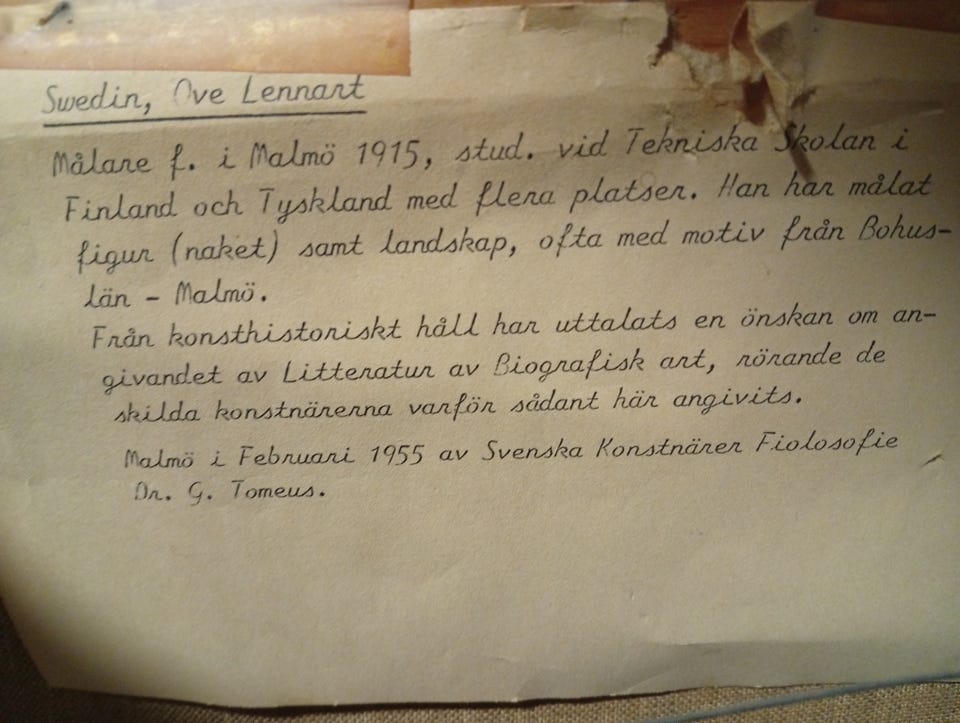 Swedin, Ove Lennart
Målare f. i Malmö 1915, stud. vid Tekniska Skolan i
Finland och Tyskland med flera platser. Han har målat
figur (naket) samt landskap, ofta med motiv från Bohus-
län - Malmö.
Från konsthistoriskt håll har uttalats en önskan om an-
givandet av Litteratur av Biografisk art, rörande de
skilda konstnärerna varför sådant här angivits.
Malmö i Februari 1955 av Svenska Konstnärer Fiolosofie
Dr. G. Tomeus.